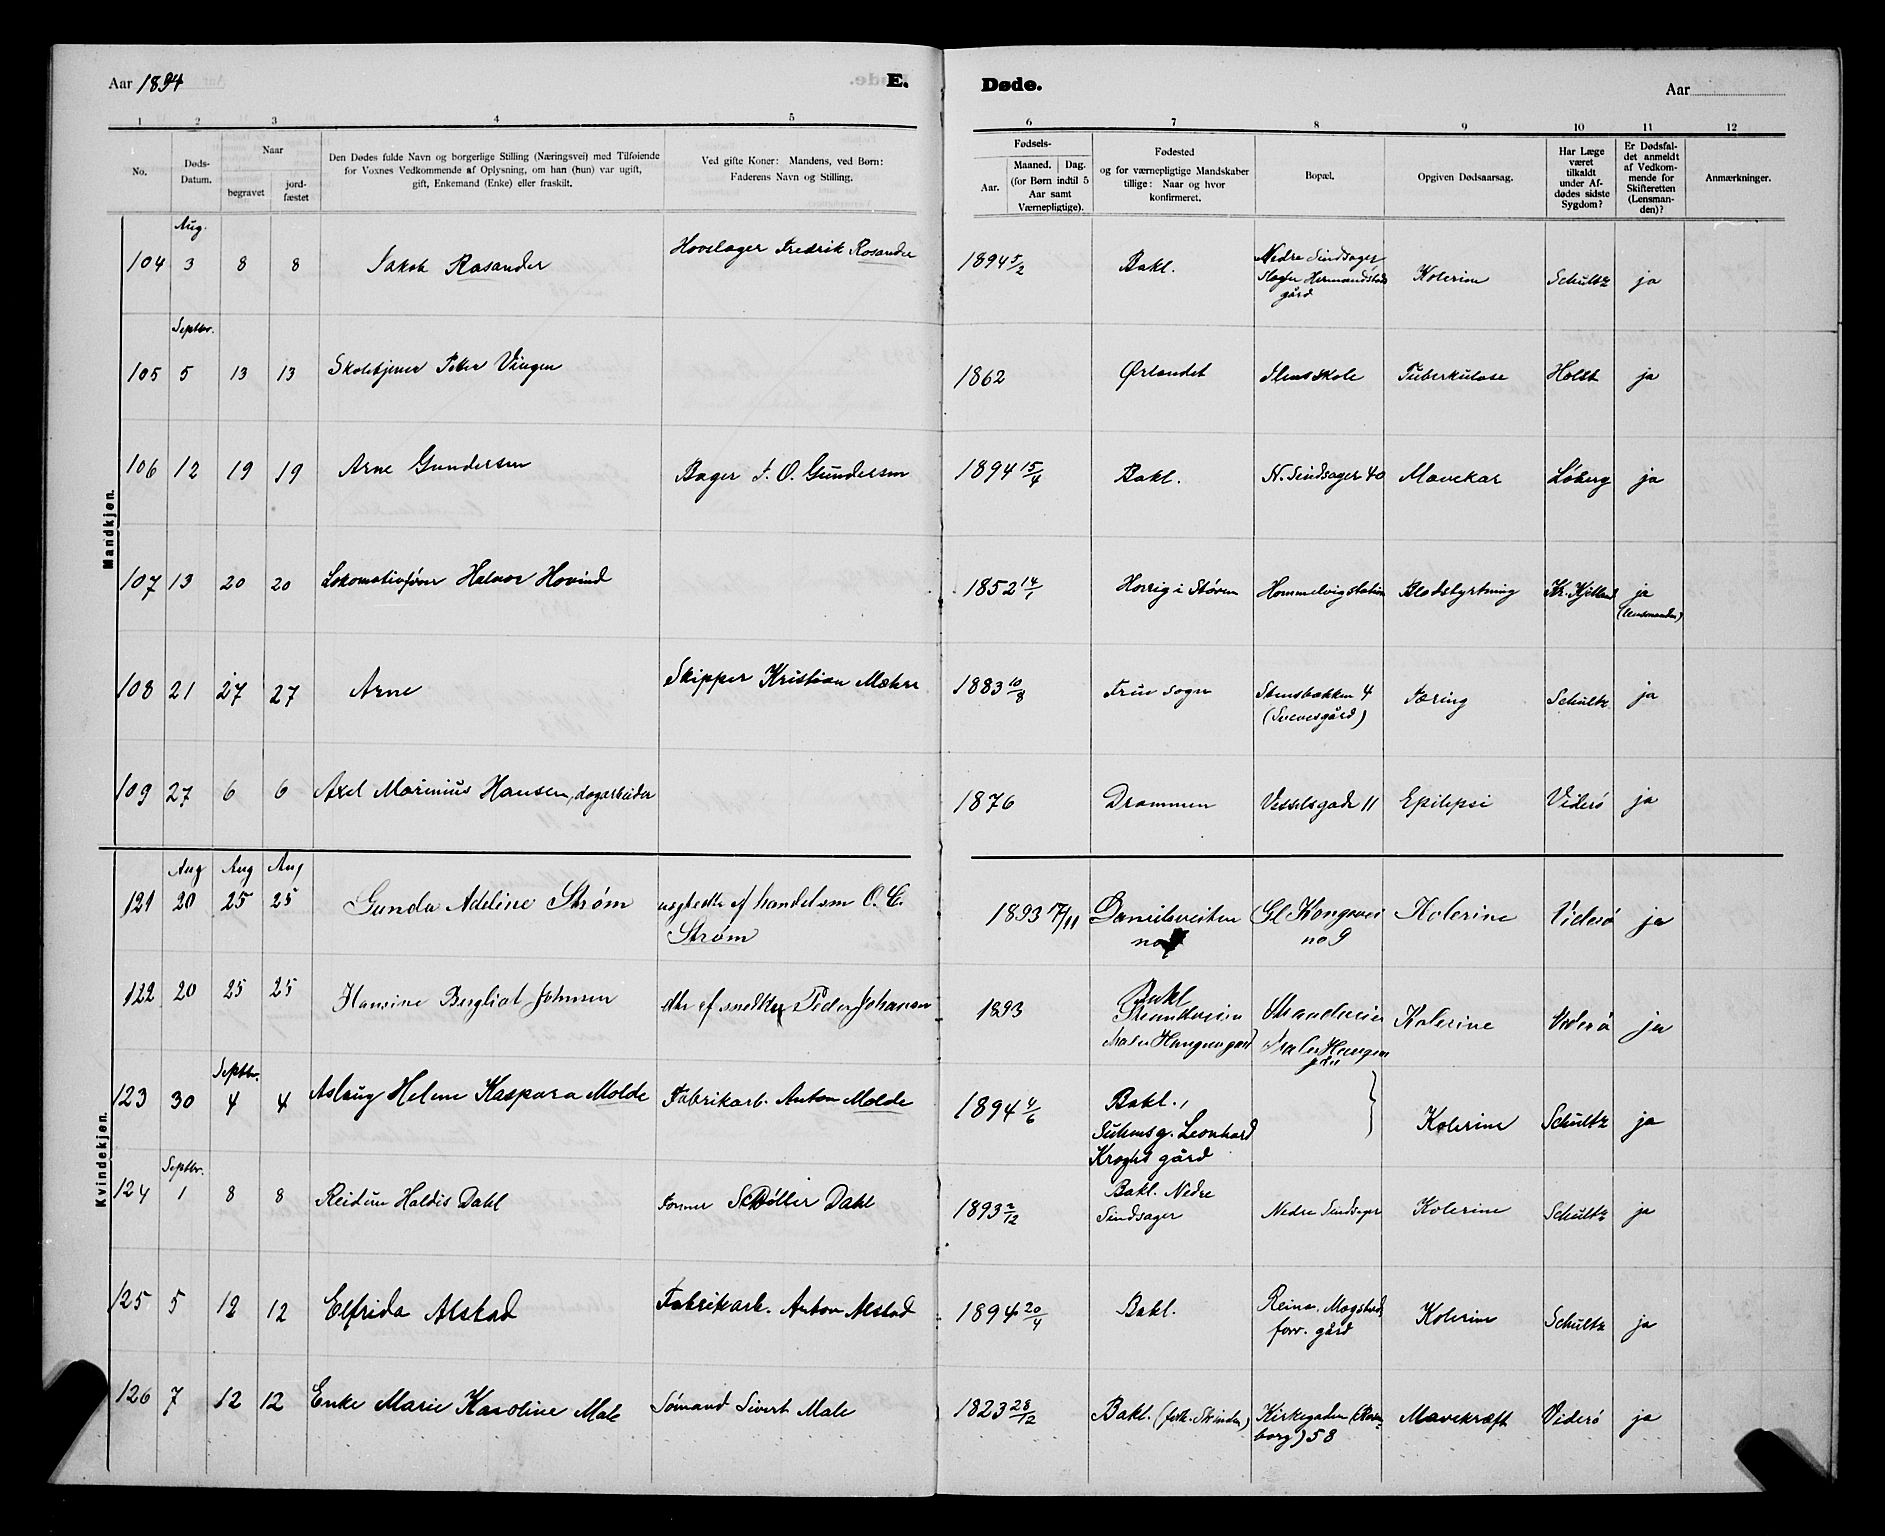 Aar 1894 E. Døde. Aar
1 2 3 4 5 6 7 8 9 10 11 12
No.
Døds-
Datum.
Naar
begravet
jord-
fæstet
Den Dødes fulde Navn og borgerlige Stilling (Næringsvei) med Tilføiende
for Voxnes Vedkommende af Oplysning, om han (hun) var ugift,
gift, Enkemand (Enke) eller fraskilt.
Ved gifte Koner: Mandens, ved Børn:
Faderens Navn og Stilling.
Fødsels-
Aar.
Maaned. Dag.
(for Børn indtil 5
Aar samt
Værnepligtige).
Fødested
og for værnepligtige Mandskaber
tillige: Naar og hvor
konfirmeret.
Bopæl.
Opgiven Dødsaarsag.
Har Læge
været
tilkaldt
under Af-
dødes sidste
Sygdom?
Er Dødsfal-
det anmeldt
af Vedkom-
mende for
Skifteretten
(Lensman-
den)?
Anmærkninger.
Mandkjøn.
Aug.
104 3 8 8 Jakob Rosander Hovslager Fredrik Rosander 1894 5/2 Bakl. Nedre Sindsager
gård Kolerine Schultz ja
Septbr.
105 5 13 13 Skoletjener Peter Vingen 1862 Ørlandet Stens skole Tuberkulose Holst ja
106 12 19 19 Arne Gundersen Bager J. O. Gundersen 1894 15/4 Bakl. N. Sindsager 40 Mavekar Løberg ja
107 13 20 20 Lokomotivfører Halvor Hovind 1852 14/1 Horrig i Støren Hommelvig station Blodstyrtning Kr. Kjelland ja
(lensmanden)
108 21 27 27 Arne Skipper Kristian Mæhre 1883 10/8 Frue sogn Stensbakken 4
(Svevesgård) Tæring Schultz ja
109 27 6 6 Axel Marinius Hansen, dagarbeider 1876 Drammen Vesselsgade 11 Epilepsi Viderø ja
Kvindekjøn.
Aug Aug Aug
121 20 25 25 Gunda Adeline Strøm uægtedtr af handelsm O. C.
Strøm 1893 17/11 Danielsveiten
no Gl Kongevei
no 9 Kolerine Viderø ja
122 20 25 25 Hansine Bergliot Johnsen dtr af snedker Peder Johansen 1893 Bakl
Strandveien
Maler Haugens gård Strandveien
Maler Haugens
gård Kolerine Viderø ja
Septbr.
123 30 4 4 Aslaug Helene Kaspara Molde Fabrikarb. Anton Molde 1894 4/6 Bakl.,
Suhmsg. Leonhard
Kroghs gård Kolerine Schultz ja
Septbr.
124 1 8 8 Reidun Haldis Dahl Former Schøller Dahl 1893 2/12 Bakl. Nedre
Sindsager Nedre Sindsager Kolerine Schultz ja
125 5 12 12 Elfrida Alstad Fabrikarb. Anton Alstad 1894 20/4 Bakl. Reina, Mogstad
forv. gård Kolerine Schultz ja
126 7 12 12 Enke Marie Karoline Male Sømand Sivert Male 1823 28/12 Bakl. (forh. Strinden) Kirkegaden (Rosen-
borg) 58 Mavekræft Viderø ja